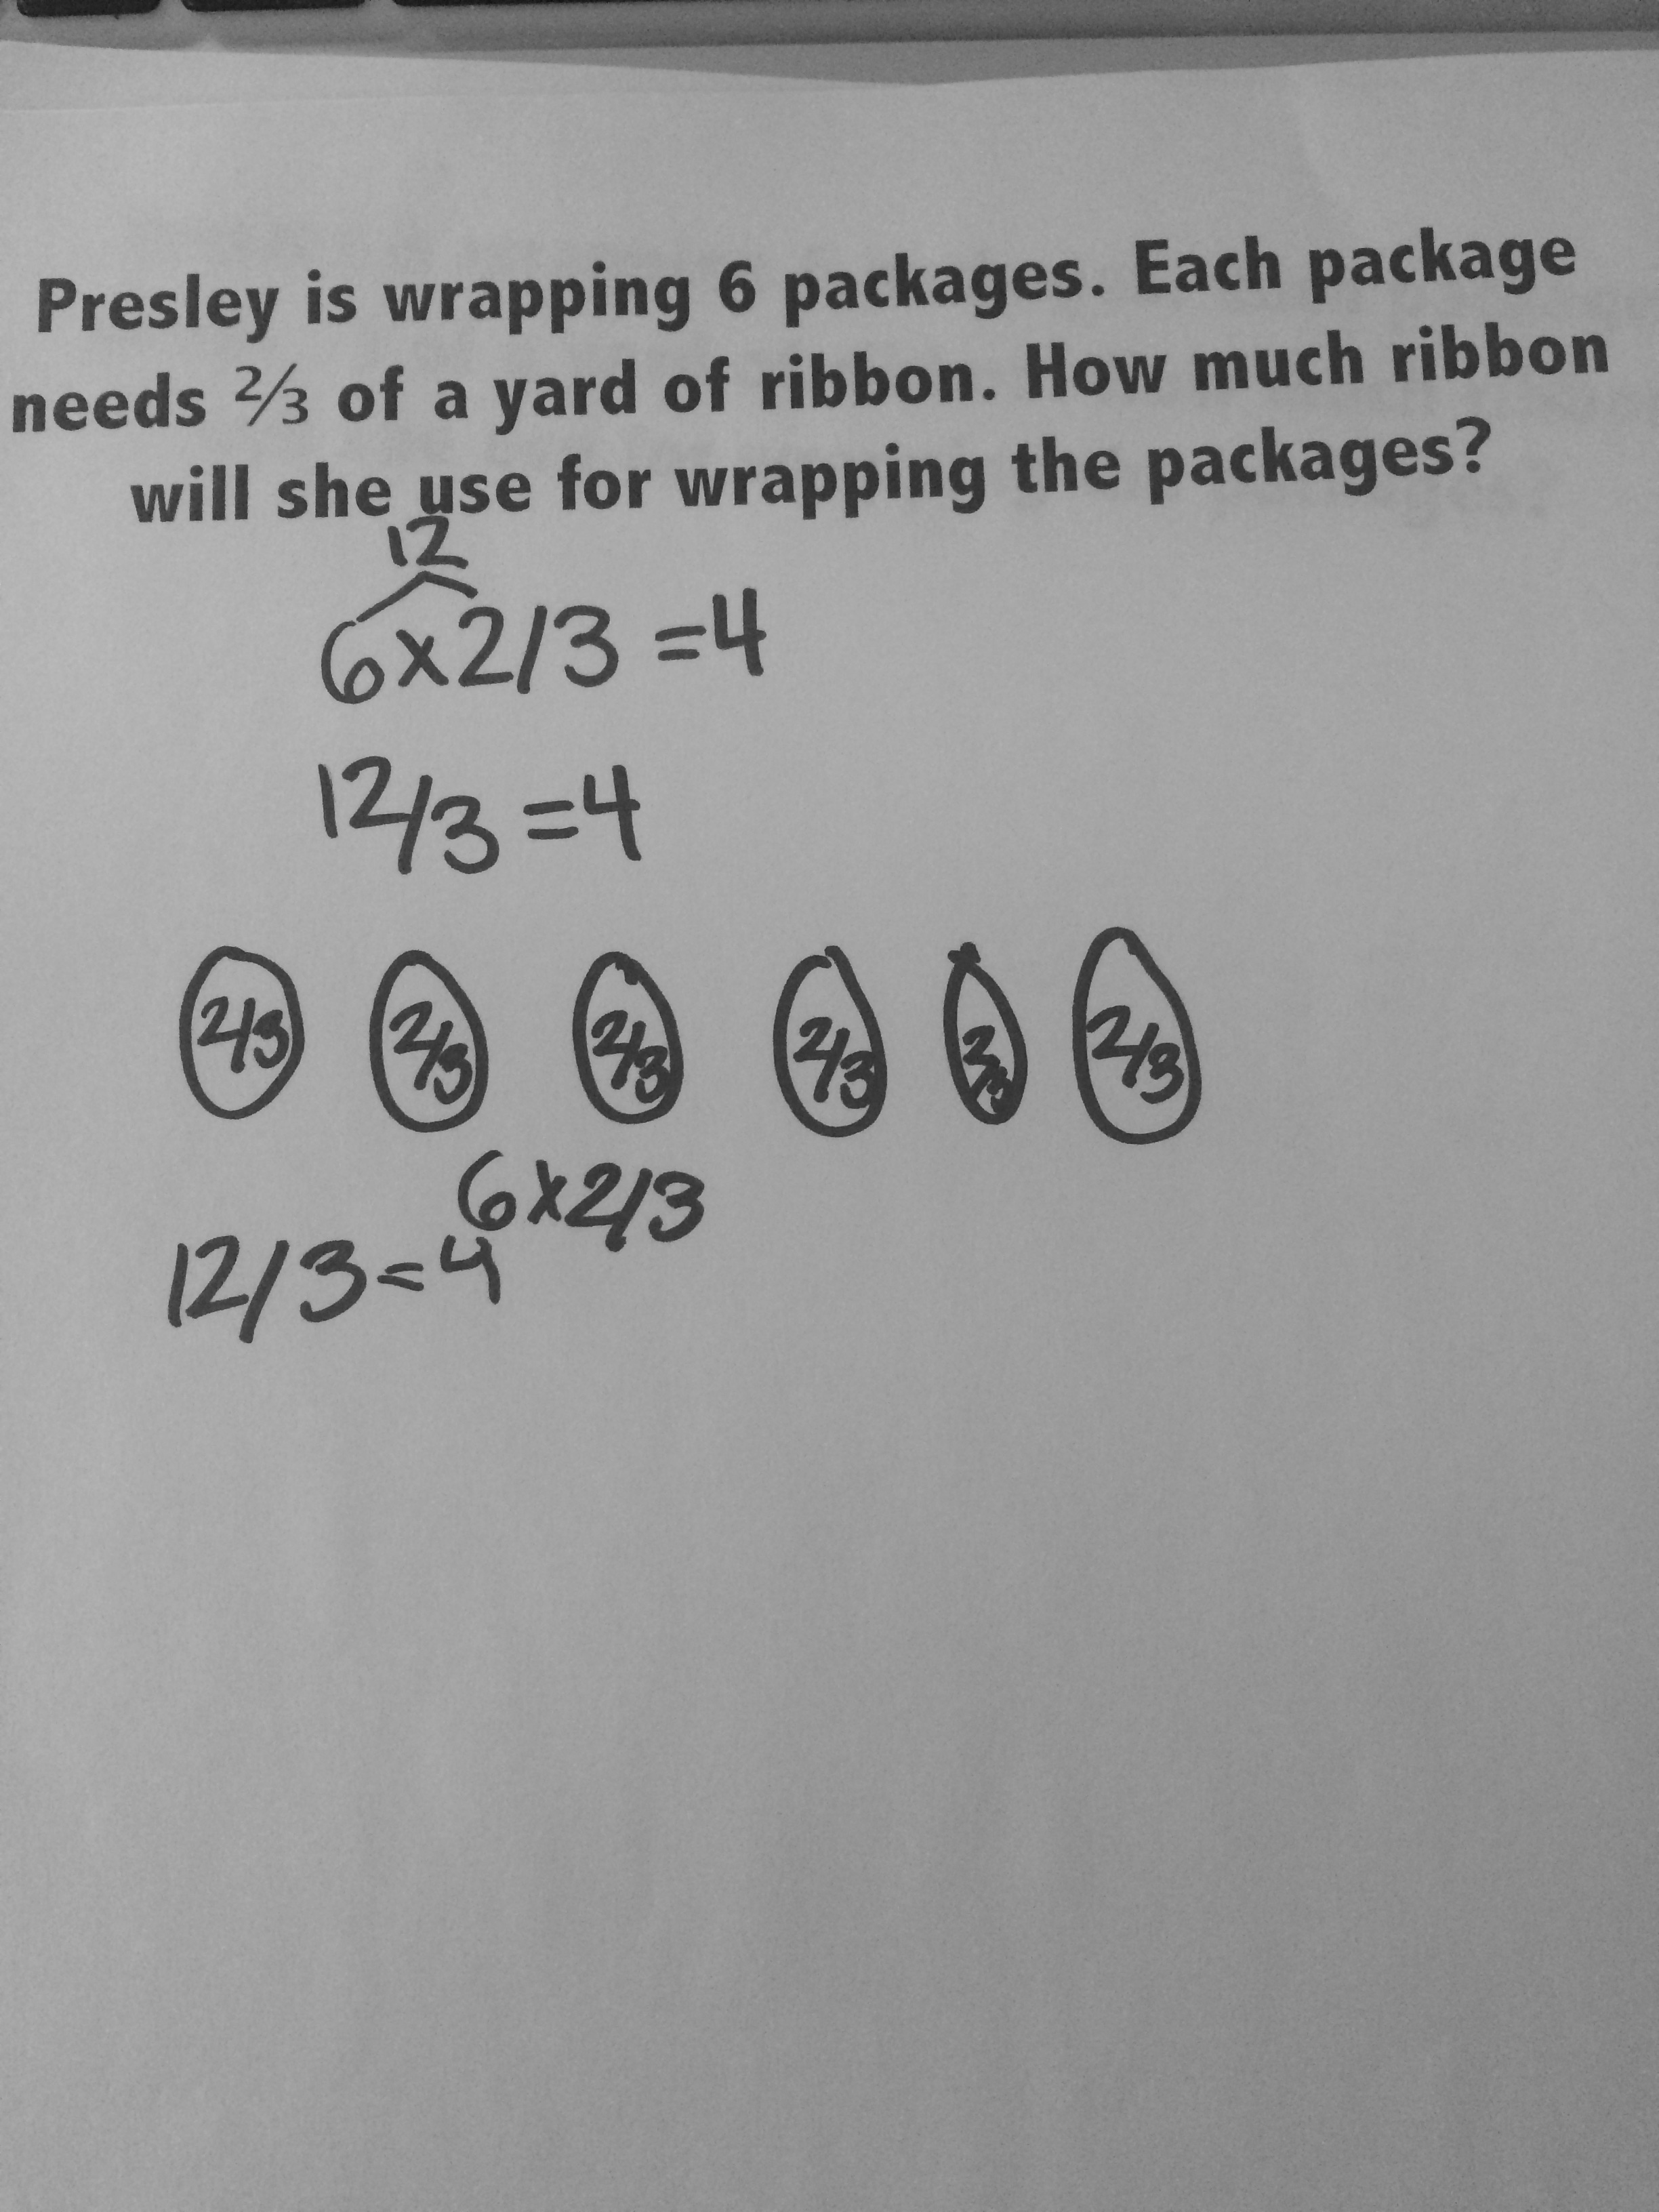 Presley is wrapping 6 packages. Each package
needs ⅔ of a yard of ribbon. How much ribbon
will she use for wrapping the packages?
12
6x2/3 =4
12/3 =4
2/3 2/3 2/3 2/3 2/3 2/3
6x2/3
12/3=4